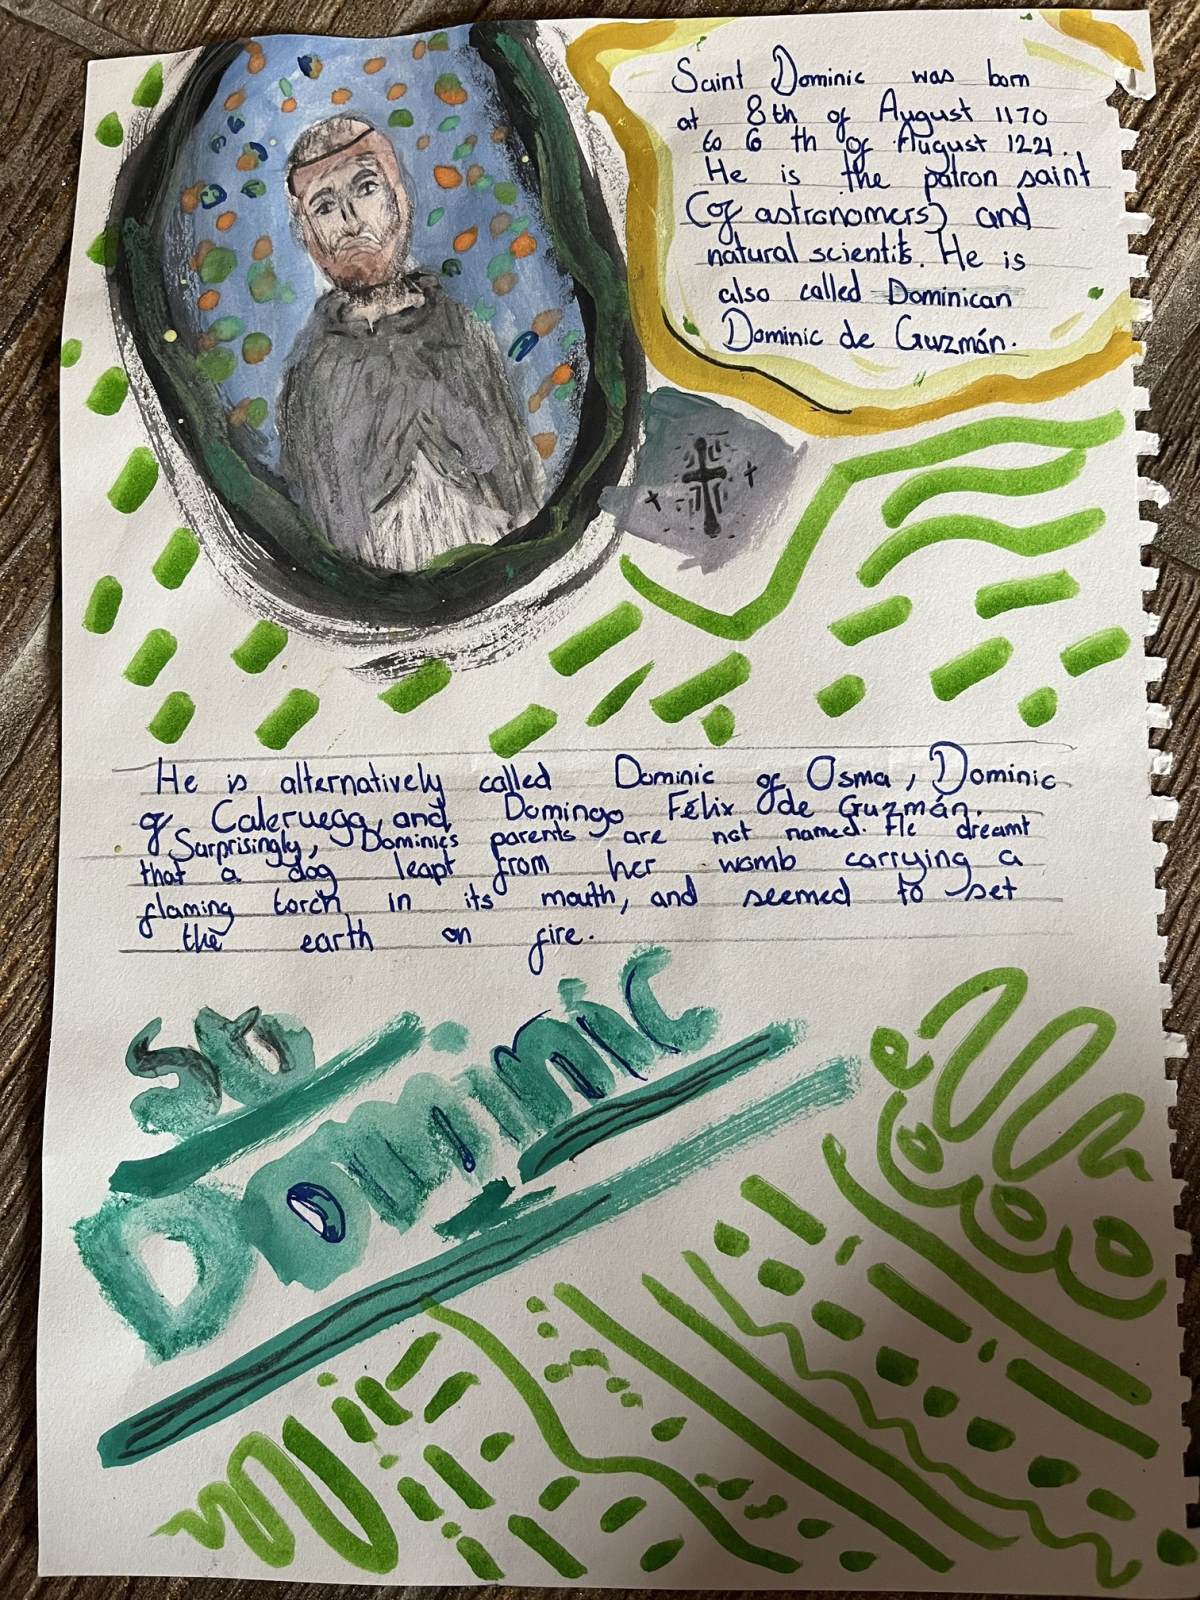 Saint Dominic was born
at 8th of August 1170
to 6 th of August 1221.
He is the patron saint
(of astronomers) and
natural scientits. He is
also called Dominican
Dominic de Guzmán.
He is alternatively called Dominic of Osma, Dominic
of Caleruega, and Domingo Félix de Guzmán.
Surprisingly, Dominics parents are not named. He dreamt
that a dog leapt from her womb carrying a
flaming torch in its mouth, and seemed to set
the earth on fire.
St
Dominic